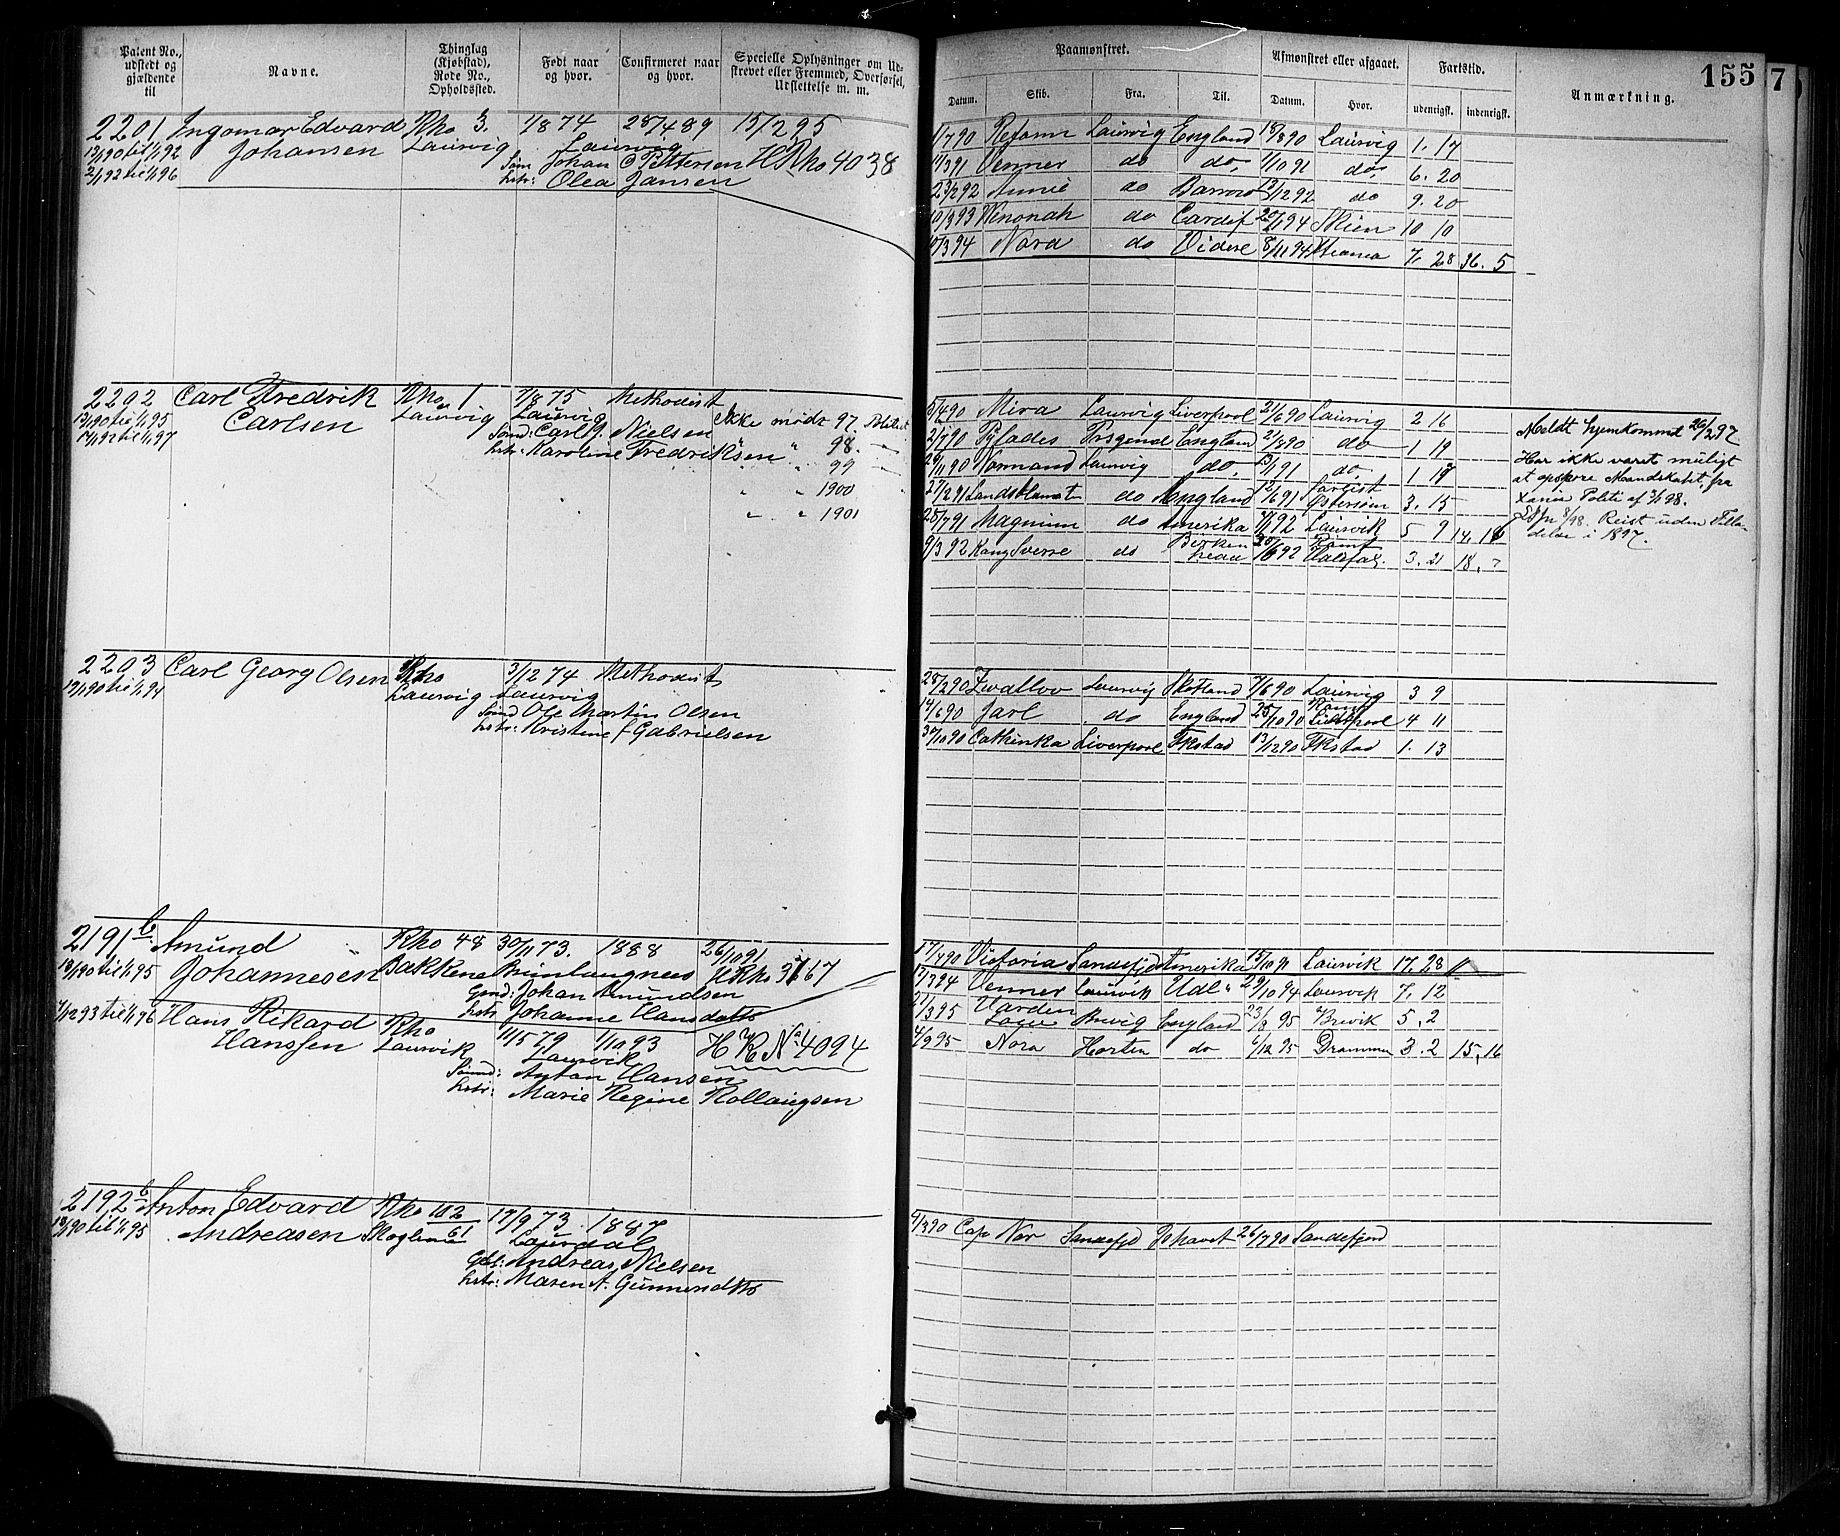 Patent No., udstedt og gjældende til
Navne.
Thinglag (Kjøbstad), Rode No., Opholdssted.
Født naar og hvor.
Confirmeret naar og hvor.
Specielle Oplysninger om Udskrevet eller Fremmed, Overførsel, Udslettelse m. m.
Paamønstret.
Datum.
Skib.
Fra.
Til.
Afmønstret eller afgaaet.
Datum.
Hvor.
Fartstid.
udenrigsk.
indenrigsk.
Anmærkning.
155
7
2201 Ingomar Edvard Rho 3. 1/8 74 28/4 89 15/2 95
13/1 90 til 1/1 92 Johansen Laurvig Laurvig
2/1 92 til 1/1 96 Søn Johan C Pettersen H Rho 4038
hstr: Olea Jansen
1/7 90 Reform Laurvig England 18/8 90 Laurvig 1. 17
11/3 91 Venner do do, 1/10 91 do, 6. 20
23/2 92 Annie do Barrow 13/12 92 do 9. 20
10/3 93 Venonah do Cardif 20/1 94 Skien 10 10
10/3 94 Nora do Videre 8/11 94 7. 28 36. 5
2202 Carl Fredrik Rho 1 7/8 75 Methodist
13/1 90 til 1/1 95 Carlsen Laurvig Laurvig Ikke mødt 97
14/1 92 til 1/1 97 Sømd: Carl J. Nielsen " 98
hstr: Karoline Fredriksen " " 99
" " 1900
" " 1901
5/4 90 Mira Laurvig Liverpool 21/6 90 Laurvig 2 16
2/7 90 Pylades Prsgrund England 21/8 90 do 1 19
Normand Laurvig do. do. 1 17
27/2 91 do England 12/6 91 Østersøen 3. 15
25/7 91 Magnum do Amerika 92 Laurvik 5 9 14. 16
9/3 92 Kong Sverre do Birkenhead 92 Rømt Halifax. 3. 21 18. 7
Meldt hjemkommen 26/2 97
Har ikke været muligt
at opspore Mandskabet fra
Xania Politi af 98.
8/98. Reist uden Tilladelse i 1897.
2203 Carl Georg Olsen Rho 3/12 74 Methodist
13/1 90 til 1/1 94 Laurvig Laurvig
Sømd Ole Martin Olsen
hstr: Kristine f Gabrielsen
25/2 90 Laurvig Skotland 7/6 90 Laurvig 3 9
14/6 90 Jarl do England 25/10 90 Rømt Liverpool 4 11
30/10 90 Cathinka Liverpool Fkstad 13/12 90 Fkstad 1. 13
2191 b Amund Rho 48 30/11 73. 1888 26/10 91
13/1 90 til 1/1 95 Johannesen Bakkene Brunlangnæs H Rho 3767
Gmd: Johan Amundsen
hstr Johanne Hansdatter
17/4 90 Victoria Sandefjd Amerika 15/10 91 Laurvik 17. 28
1/12 93 til 1/1 96 Hans Rikard Rho 11/5 79 1/10 93 H R No 4094
Hanssen Laurvik Laurvik
Sømd: Anton Hansen
hstr: Marie Regine Rollaugsen
13/3 94 Venner Laurvik Udl " 29/10 94 Laurvik 7. 12
27/3 95 Varden Brevig England 23/8 95 Brevik 5. 2
4/9 95 Nora Horten do 6/12 95 Drammen 3. 2 15. 16
2192 b Anton Edvard Rho 102 17/9 73. 1887
13/1 90 til 1/1 95 Andreasen 61 Laurdal
Gbr: Andreas Nielsen
hstr: Maren A. Gunnersdttr
5/3 90 Cap Nor Sandefjd Ishavet 26/7 90 Sandefjord